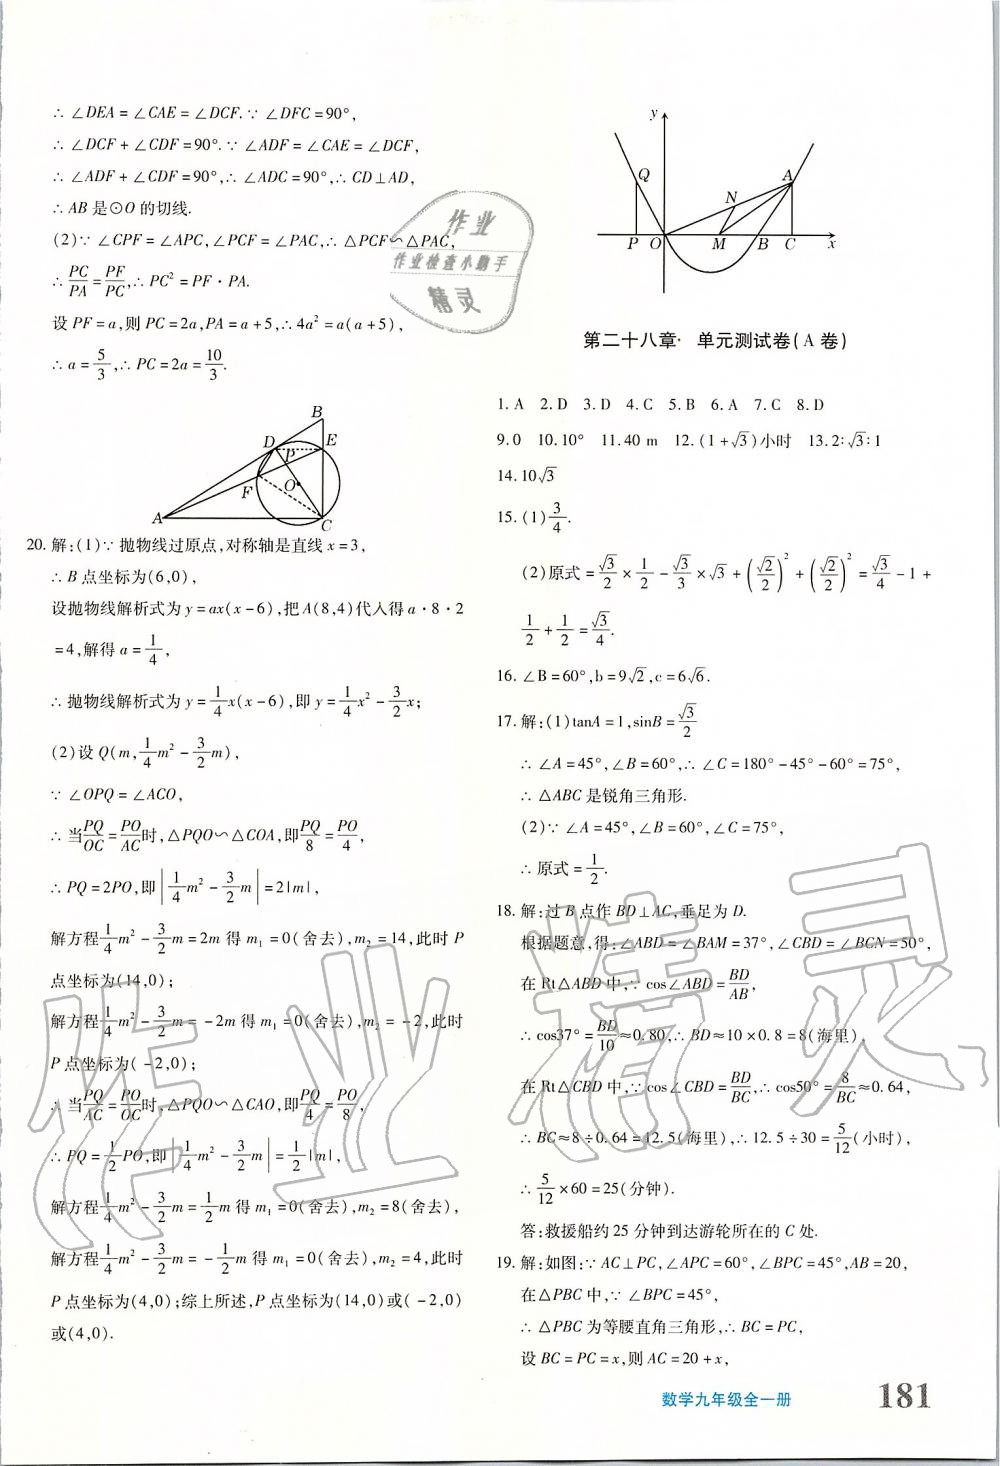 ∴ ∠DEA = ∠CAE = ∠DCF. ∵ ∠DFC = 90°,
∴ ∠DCF + ∠CDF = 90°. ∵ ∠ADF = ∠CAE = ∠DCF,
∴ ∠ADF + ∠CDF = 90°, ∴ ∠ADC = 90°, ∴ CD⊥AD,
∴ AB 是⊙O 的切线.
(2)∵ ∠CPF = ∠APC, ∠PCF = ∠PAC, ∴ △PCF∽△PAC,
∴ PC/PA = PF/PC, ∴ PC² = PF·PA.
设 PF = a, 则 PC = 2a, PA = a + 5, ∴ 4a² = a(a + 5),
∴ a = 5/3, ∴ PC = 2a = 10/3.
B
D
E
P
O
F
A
C
20. 解:(1)∵ 抛物线过原点,对称轴是直线 x = 3,
∴ B 点坐标为(6,0),
设抛物线解析式为 y = ax(x - 6),把 A(8,4)代入得 a·8·2
= 4,解得 a = 1/4,
∴ 抛物线解析式为 y = 1/4 x(x - 6),即 y = 1/4 x² - 3/2 x;
(2)设 Q(m, 1/4 m² - 3/2 m),
∵ ∠OPQ = ∠ACO,
∴ 当 PQ/OC = PO/AC 时,△PQO∽△COA,即 PQ/8 = PO/4,
∴ PQ = 2PO,即 |1/4 m² - 3/2 m| = 2|m|,
解方程 1/4 m² - 3/2 m = 2m 得 m₁ = 0(舍去),m₂ = 14,此时 P
点坐标为(14,0);
解方程 1/4 m² - 3/2 m = -2m 得 m₁ = 0(舍去),m₂ = -2,此时
P 点坐标为(-2,0);
∴ 当 PQ/AC = PO/OC 时,△PQO∽△CAO,即 PQ/4 = PO/8,
∴ PQ = 1/2 PO,即 |1/4 m² - 3/2 m| = 1/2 |m|,
解方程 1/4 m² - 3/2 m = 1/2 m 得 m₁ = 0(舍去),m₂ = 8(舍去),
解方程 1/4 m² - 3/2 m = -1/2 m 得 m₁ = 0(舍去),m₂ = 4,此时
P 点坐标为(4,0);综上所述,P 点坐标为(14,0)或(-2,0)
或(4,0).
y
Q
A
N
P O M B C x
第二十八章· 单元测试卷(A 卷)
1. A 2. D 3. D 4. C 5. B 6. A 7. C 8. D
9. 0 10. 10° 11. 40 m 12. (1 + √3)小时 13. 2∶√3∶1
14. 10√3
15. (1) 3/4.
(2)原式 = √3/2 × 1/2 - √3/3 × √3 + (√2/2)² + (√2/2)² = √3/4 - 1 +
1/2 + 1/2 = √3/4.
16. ∠B = 60°, b = 9√2, c = 6√6.
17. 解:(1)tanA = 1, sinB = √3/2
∴ ∠A = 45°, ∠B = 60°, ∴ ∠C = 180° - 45° - 60° = 75°,
∴ △ABC 是锐角三角形.
(2)∵ ∠A = 45°, ∠B = 60°, ∠C = 75°,
∴ 原式 = 1/2.
18. 解:过 B 点作 BD⊥AC,垂足为 D.
根据题意,得:∠ABD = ∠BAM = 37°, ∠CBD = ∠BCN = 50°,
在 Rt△ABD 中,∵ cos∠ABD = BD/AB,
∴ cos37° = BD/10 ≈ 0.80, ∴ BD ≈ 10 × 0.8 = 8(海里).
在 Rt△CBD 中,∵ cos∠CBD = BD/BC, ∴ cos50° = 8/BC ≈ 0.64,
∴ BC ≈ 8 ÷ 0.64 = 12.5(海里), ∴ 12.5 ÷ 30 = 5/12(小时),
∴ 5/12 × 60 = 25(分钟).
答:救援船约 25 分钟到达游轮所在的 C 处.
19. 解:如图:∵ AC⊥PC, ∠APC = 60°, ∠BPC = 45°, AB = 20,
在△PBC 中,∵ ∠BPC = 45°,
∴ △PBC 为等腰直角三角形,∴ BC = PC,
设 BC = PC = x,则 AC = 20 + x,
数学九年级全一册 181
作业
作业检查小助手
精灵
作业精灵